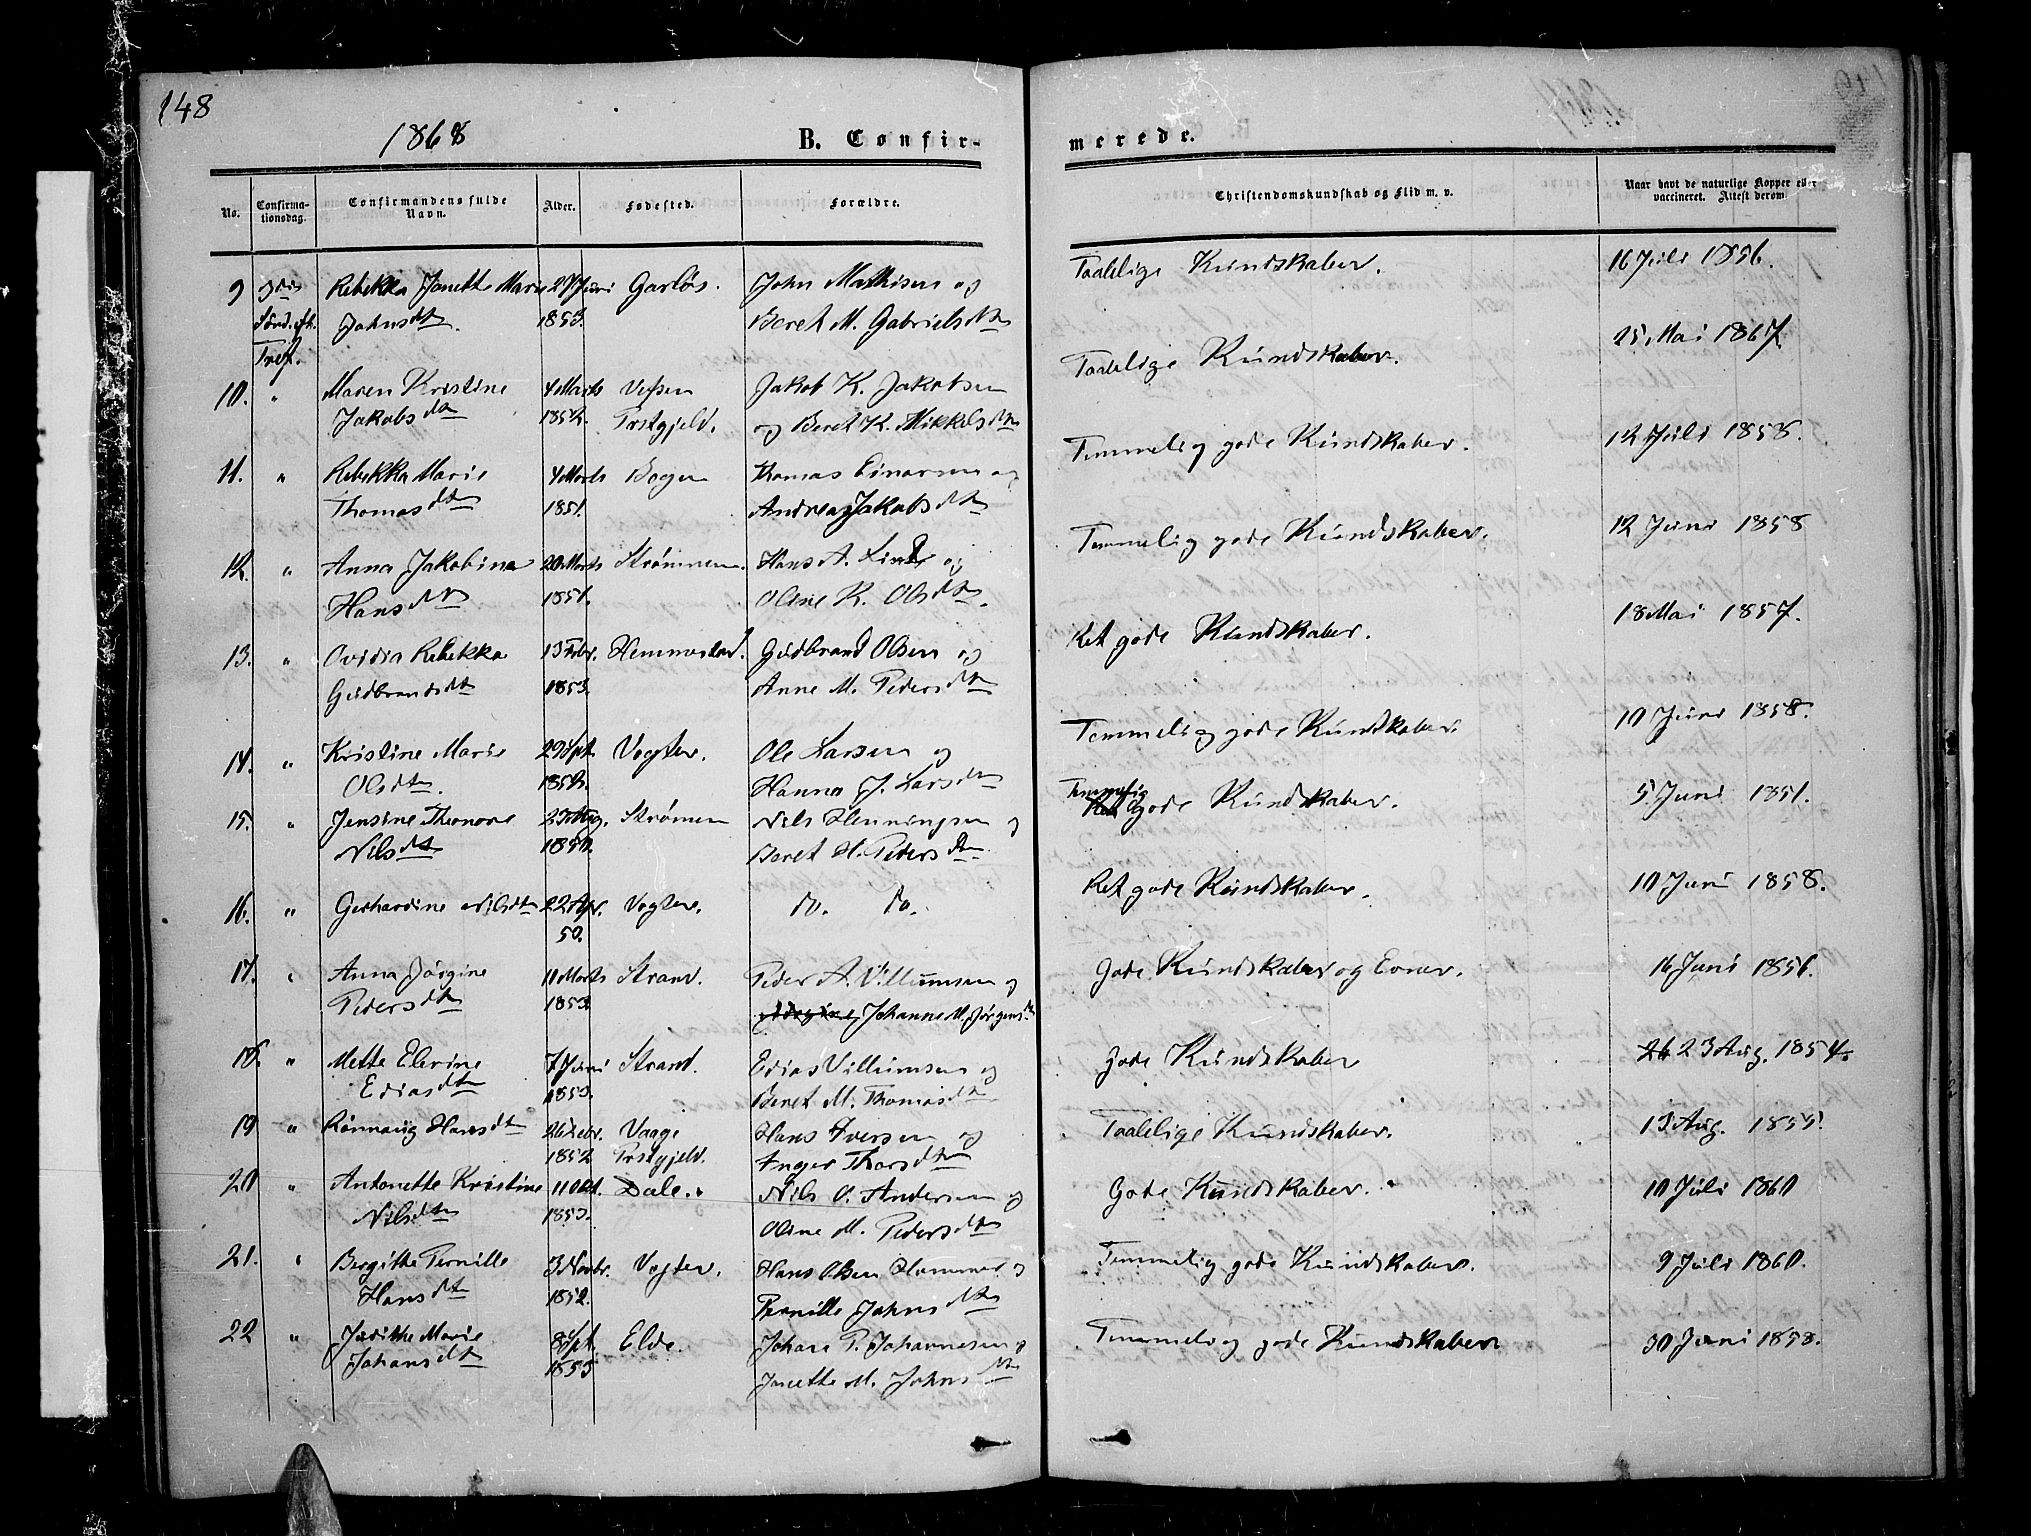 148
1868
B. Confir-
merede.
No.
Confirma-
tionsdag.
Confirmandens fulde
Navn.
Alder.
Fødested.
Forældre.
Christendomskundskab og Flid m. v.
Naar havt de naturlige Kopper eller
vaccineret. Attest derom.
9 3die Rebekka Janette Marie 27 Juni Garløs. John Mathisen og Taalelige Kundskaber. 16 Juli 1856.
Sønd. eft. Johnsdtr. 1853. Beret M. Gabrielsdtr
Tref.
10. " Maren Kristine 4 Marts Vefsen Jakob K. Jakobsen Taalelige Kundskaber. 25 Mai 1867.
Jakobsdtr 1852. Prstgjeld. og Beret K. Mikkelsdtr
11. " Rebekka Marie 4 Marts Bogen Thomas Einarsen og Temmelig gode Kundskaber. 12 Juli 1858.
Thomasdtr 1851. Andrea Jakobsdtr
12. " Anna Jakobina 20 Marts Strømmen. Hans A. Lind og Temmelig gode Kundskaber. 12 Juni 1858
Hansdtr 1851. Oline K. Olsdtr.
13. " Ovidia Rebekka 13 Febr. Hemmestad. Gudbrand Olsen og Ret gode Kundskaber. 18 Mai 1857.
Gudbrandsdtr 1853. Anne M. Pedersdtr
14. " Kristine Marie 29 Spt. Vogter. Ole Larsen og Temmelig gode Kundskaber. 10 Juni 1858.
Olsdtr. 1852. Hanna J. Larsdtr
15. " Jensine Theonore Aug. Strømen Nils Henningsen og Temmelig gode Kundskaber. 5 Juni 1851.
Nilsdtr 1850. Beret H. Pedersdtr.
16. " Gerhardine Nilsdtr 22 Apr. Vogter. do. do. Ret gode Kundskaber. 10 Juni 1858.
50.
17. " Anna Jørgine 11 Marts Strand. Peder A. Villumsen og Gode Kundskaber og Evner. 16 Juni 1856.
Pedersdtr 1853. Johanne M. Jørgensdtr
18. " Mette Elerine 7 Juni Strand. Edias Villumsen og Gode Kundskaber 23 Aug. 1854.
Ediasdtr 1853. Beret M. Thomasdtr
19 " Rønnaug Hansdtr 26 Febr. Vaage Hans Iversen og Taalelige Kundskaber. 13 Aug. 1855.
1852 Prstgjeld. Inger Thorsdtr
20 " Antonette Kristine 11 Okt. Dale. Nils O. Andersen og Gode Kundskaber. 10 Juli 1860
Nilsdtr 1853. Oline M. Pedersdtr
21. " Bergitte Pernille 3 Novbr. Vogter. Hans Olsen Hammer og Temmelig gode Kundskaber. 9 Juli 1860.
Hansdtr 1852. Pernille Johnsdtr
22 " Judithe Marie 8 Spt. Elde. Johan P. Johannesen og Temmelig gode Kundskaber 30 Juni 1858.
Johansdtr 1853 Janette M. Johnsdtr